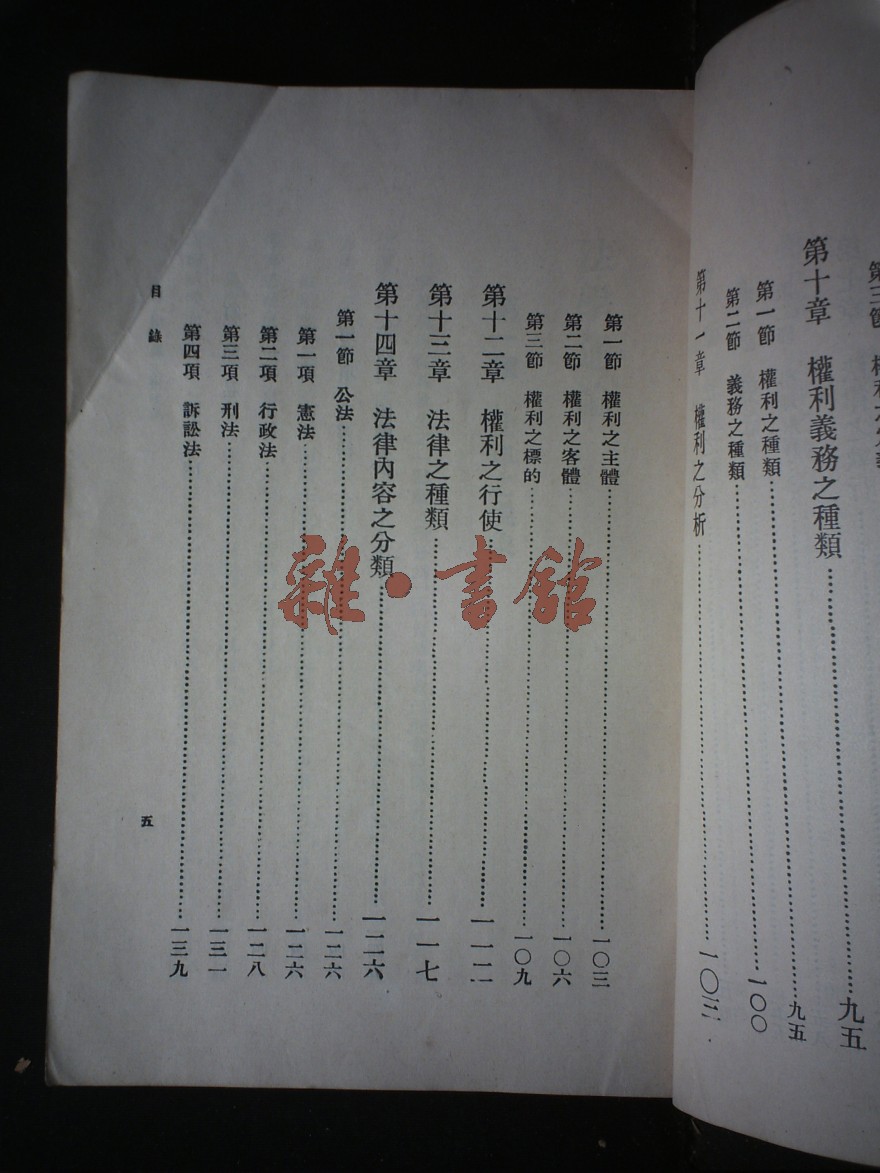 第三節 權利之
第十章 權利義務之種類……九五
第一節 權利之種類……九五
第二節 義務之種類……一〇〇
第十一章 權利之分析……一〇三
第一節 權利之主體……一〇三
第二節 權利之客體……一〇六
第三節 權利之標的……一〇九
第十二章 權利之行使……一一二
第十三章 法律之種類……一一七
第十四章 法律內容之分類……一二六
第一節 公法……一二六
第一項 憲法……一二六
第二項 行政法……一二八
第三項 刑法……一三一
第四項 訴訟法……一三九
目錄 五
雜·書館